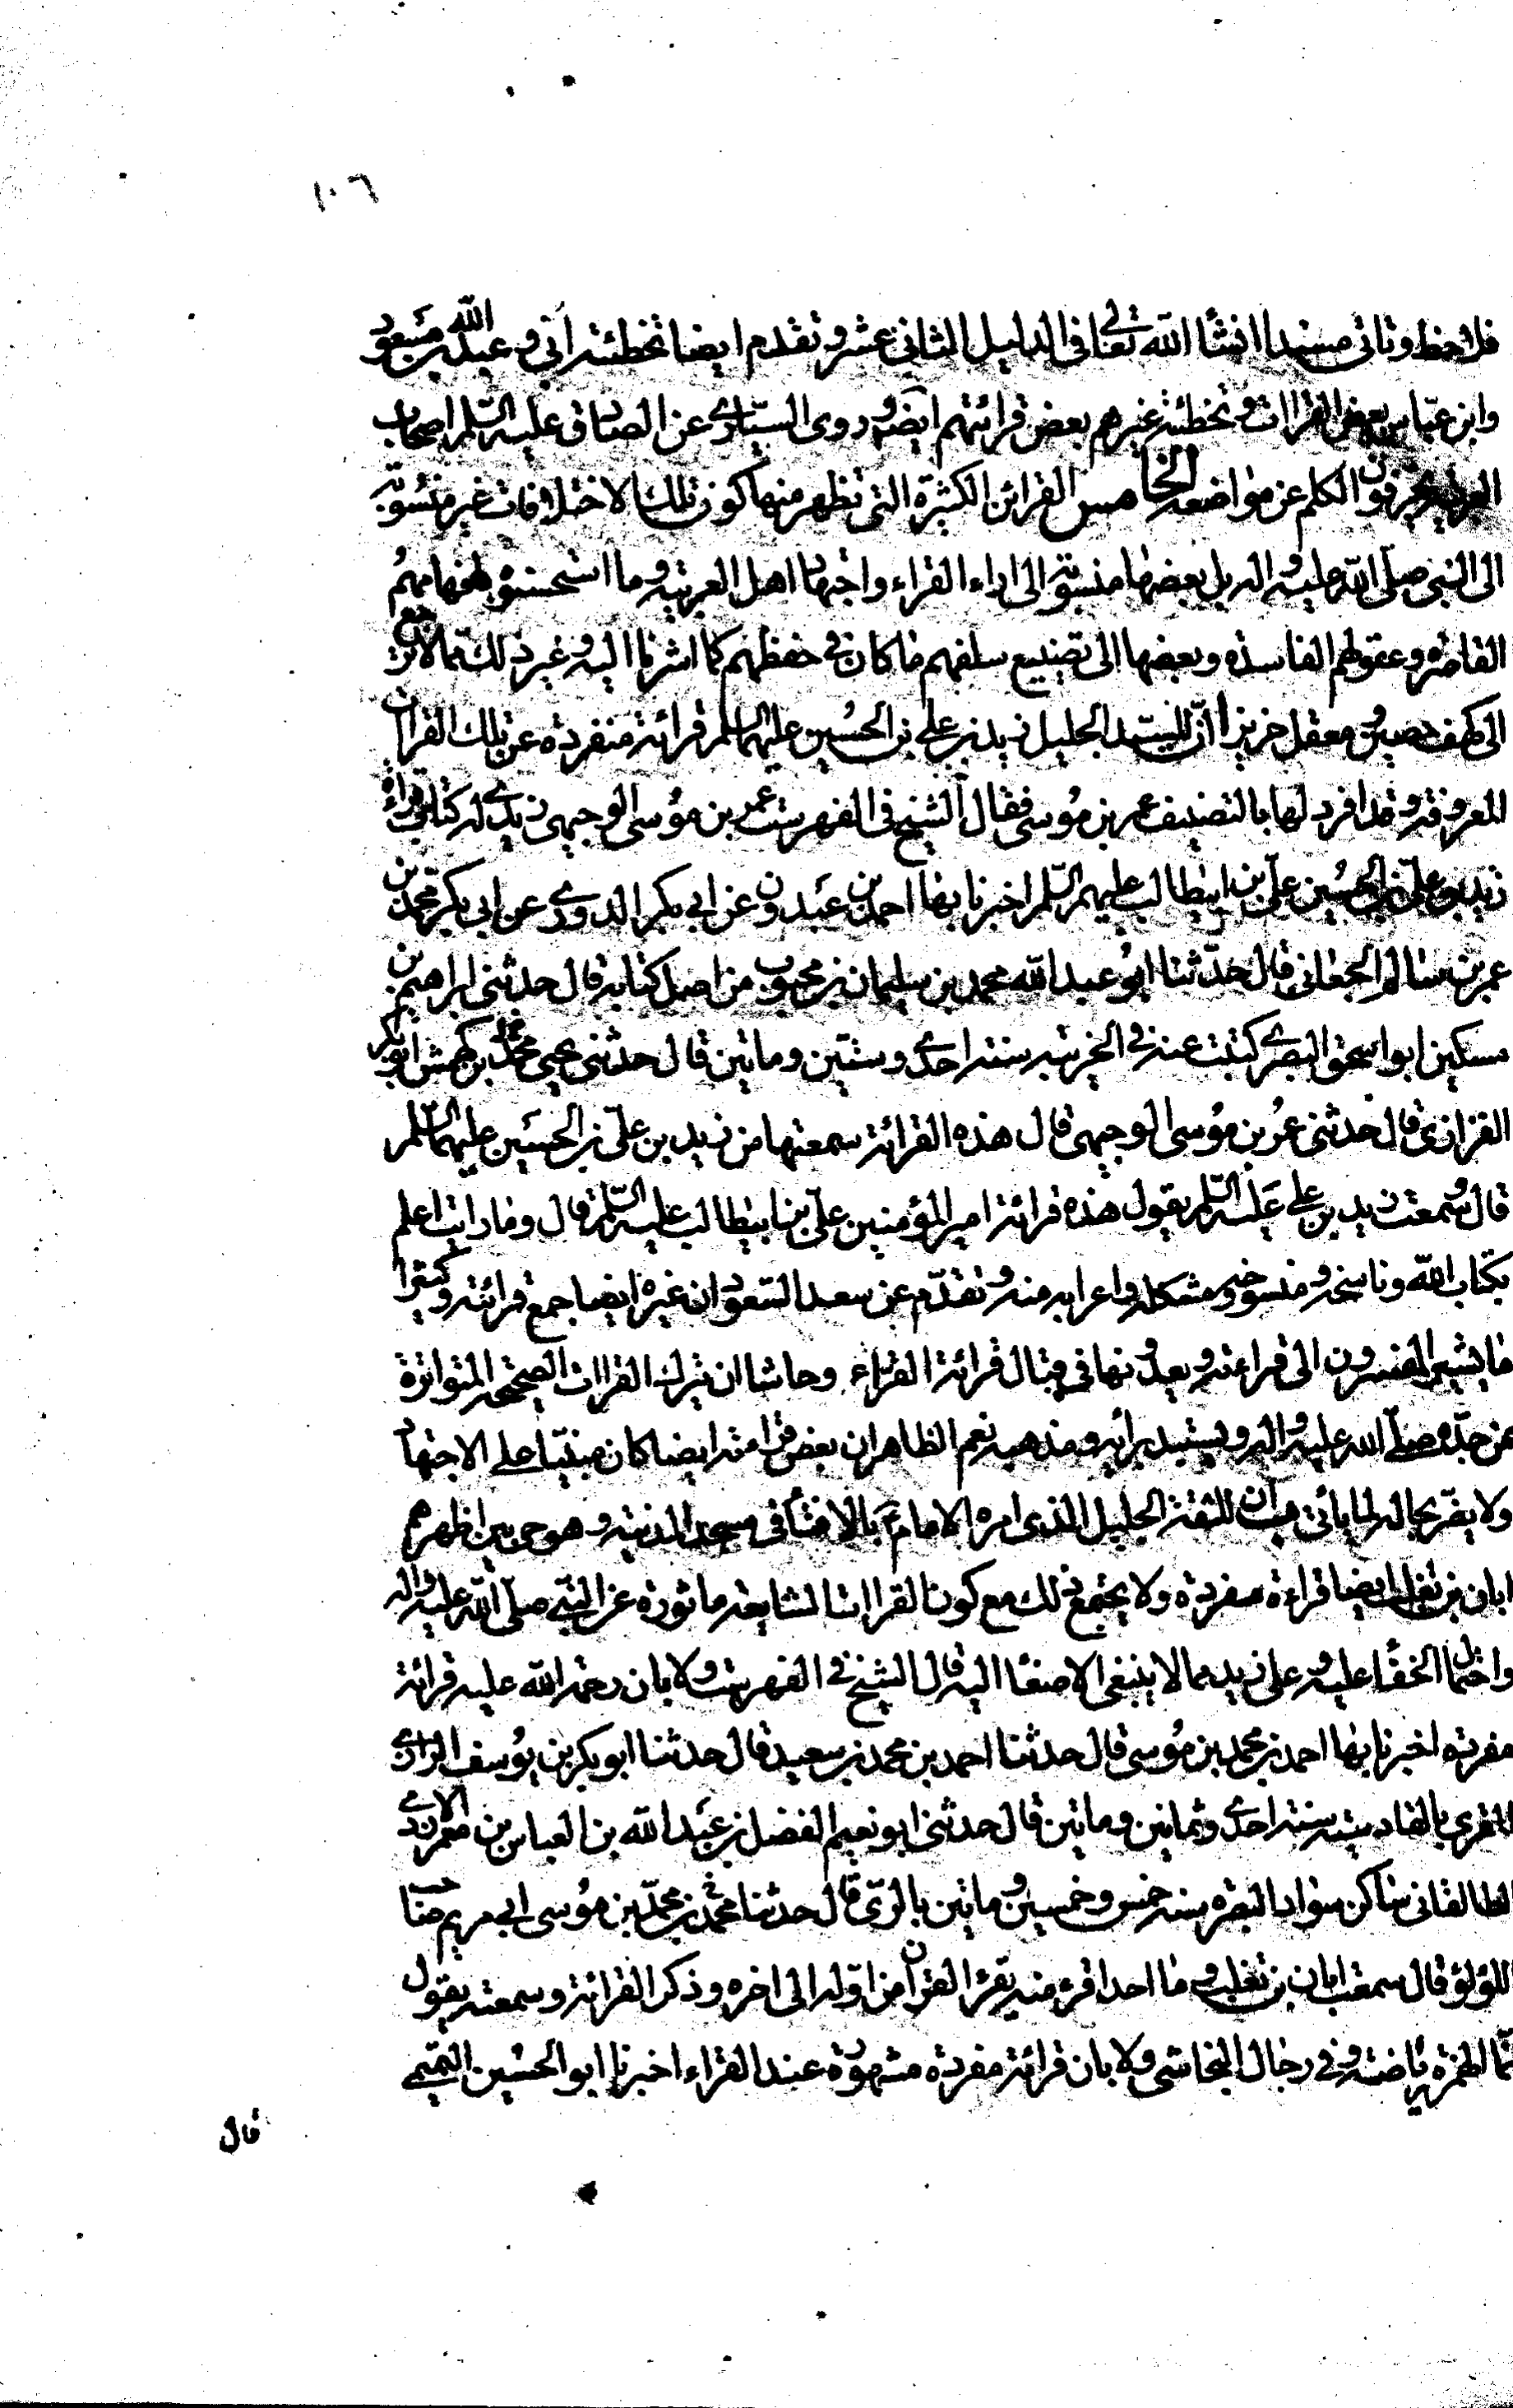 ١٠٦
فلاحظ وتاتى مسندا انشأ الله تعالى فى الدليل الثانى عشر وتقدم ايضا تخطئة ابى وعبد الله بن مسعود
وابن عباس بعض القراات وتخطئة غيرهم بعض قرائتهم ايضا وروى السيّارى عن الصادق عليه السّلم اصحاب
العربية يحرفون الكلم عن مواضعه الخامس القرائن الكثيرة التى تظهر منها كون تلك الاختلافات غير منسوبة
الى النبى صلّى الله عليه واله بل بعضها منسوبة الى اراء القراء واجتهاد اهل العربية وما استحسنوه بافهامهمُ
القاصره وعقولهم الفاسده وبعضها الى تضييع سلفهم ما كان فى حفظهم كما اشرنا اليه وغير ذلك مما لا يرجع
الى كهف حصين ومعقل حريز ا انّ للسيّد الجليل زيد بن على بن الحسُين عليهما السلم قرائة منفردة عن تلك القران
المعروفة وقد افرد لها بالتصنيف عمر بن مُوسى فقال الشيخ فى الفهرست عمر بن مُوسى الوجيهى زيدى له كتاب قراءة
زيد بن علىّ بن الحسُين علىّ بن ابيطالب عليهم السّلم اخبرنا بها احمد بن عَبدون عن ابى بكر الدورى عن ابى بكر محمد بن
عمر بن سالم الجعابى قال حدّثنا ابُو عبد الله محمد بن سليمان بن محبوب من اصل كتابه قال حدثنى ابراهيم بن
مسكين ابو اسحق البصرى كتبت عنه فى الخريبة سنة احدى وستّين وماتين قال حدثنى يحيى محمد بن كهمش ابو بكر
القزازى قال حدثنى عمُر بن مُوسى الوجيهى قال هذه القرائة سمعتها من زيد بن علىّ بن الحسَين عليهما السّلم
قال وسمعت زيد بن على عَليه السّلم يقول هذه قرائة امير المؤمنين علىّ بن ابيطالب عليه السّلم قال وما رايت اعلم
بكتاب الله وناسخه ومنسوخه ومشكله واعرابه منه وتقدّم عن سعد السّعود ان غيره ايضا جمع قرائته وكثيرا
ما يشير المفسرون الى قراءته ويعدونها فى قبال قرائة القرّاء وحاشا ان يترك القراات الصحيحه المتواترة
عن جدّه صلّى الله عليه واله ويستبد برائه ومذهبه نعم الظاهر ان بعض قرائته ايضا كان مبنيّا على الاجتهاد
ولا يضّر بحاله لما ياتى ب ان للثقة الجليل الذى امره الامامَ بالافتأ فى مسجد المدينة وهو حى بين اظهرهم
ابان بن تغلب ايضا قراءة مفردة ولا يجتمع ذلك مع كون القراات الشايعة ماثورة عن النبّى صلى الله عليه واله
واحتمال الخفأ عليه وعلى زيد مما لا ينبغى الاصغأ اليه قال الشيخ فى الفهرست ولابان رحمة الله عليه قرائة
مفردة اخبرنا بها احمد بن محمد بن مُوسى قال حدثنا احمد بن محمد بن سعيد قال حدثنا ابو بكر بن يُوسف الرازى
المقرى بالقادسيّة سنة احدى وثمانين وماتين قال حدثنى ابو نعيم الفضل بن عَبد الله بن العباس بن معمر الازدى
الطالقانى ساكن سواد البصره سنة خمس وخمسين وماتين بالرّى قال حدثنا محمّد بن محمّد بن مُوسى ابى مريم صاحب
اللؤلؤ قال سمعت ابان بن تغلب وما احد اقرء منه يقرُا القران من اوّله الى اخره وذكر القرائة وسمعته يقول
انّما الهمزة رياضة وفى رجال النجاشى ولابان قرائة مفردة مشهورة عند القراء اخبرنا ابو الحسُين التميمى
قال